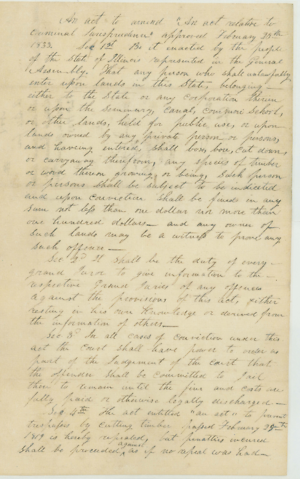 An act to amend "An act relative to
Criminal Jurisprudence" approved February 28th
1833. Sec 1st Be it enacted by the people
of the State of Illinois represented in the General
Assembly, That any person who shall unlawfully
enter upon lands in this State, belonging
either to the State or any Corporation therein
or upon the Seminary, Canal, Common School,
or other lands, held for public use, or upon
lands owned by any private person or persons,
and having entered, shall box, cut down
or carry away therefrom, any species of timber
or wood thereon growing or being, Such person
or persons shall be subject to be indicted
and upon conviction shall be fined in any
sum not less than one dollar nor more than
one hundred dollars and any owner of
such lands may be a witness to prove any
such offence
Sec 2d It shall be the duty of every
grand Juror to give information to the
respective Grand Juries of any offences
against the provisions of this act, either
resting in his own knowledge or derived from
the information of others
Sec 3d In all cases of conviction under this
act the Court shall have power to
part of the Judgement of the Court that
the offender shall be committed to Jail
there to remain until the fine and costs are
fully paid or otherwise legally discharged
Sec 4th The act entitled "an act" to prevent
trespass by cutting timber passed February
is hereby repealed, but penalties incurred
shall be proceeded against as if no repeal was had